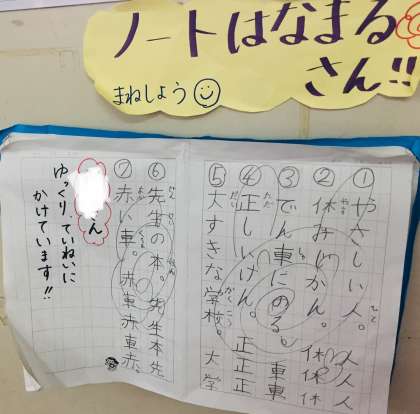 ノートはなまる
さん!!
まねしよう
①やさしい人。 人人人
②休みじかん。 休休休
③でん車にのる。 車車
④正しいけん。 正正正
⑤大すきな学校。 大学
⑥先生の本。 先生本先
⑦赤い車。 赤車赤車赤。
ん
ゆっくり、ていねいに
かけています!!